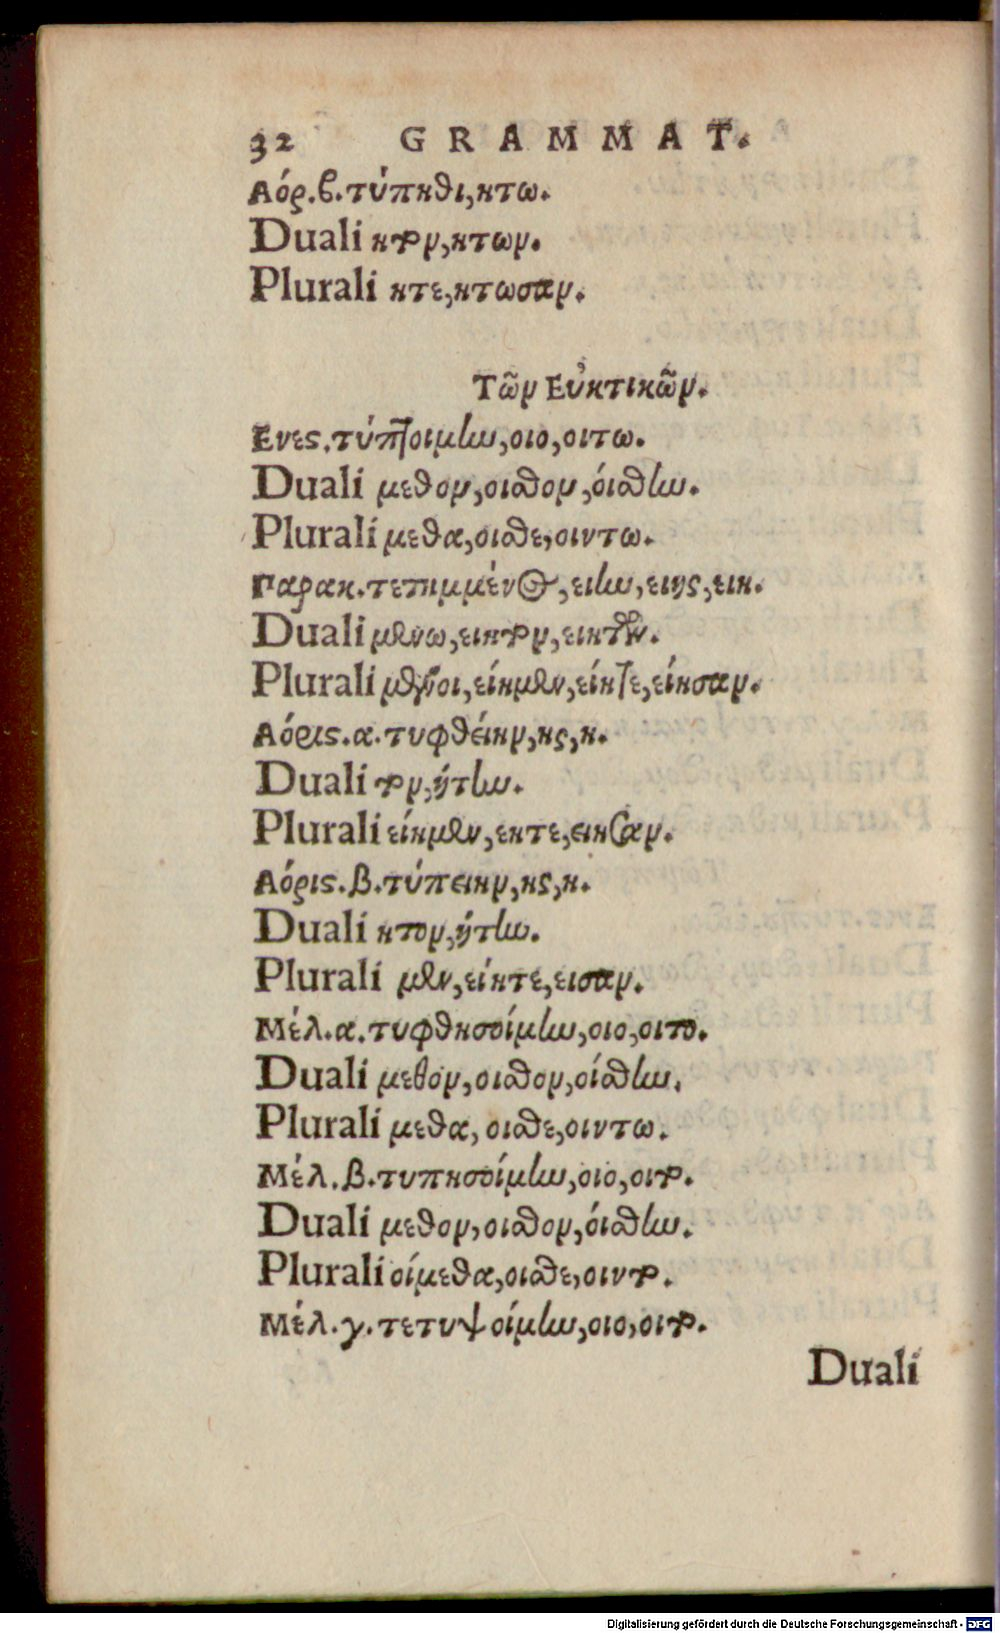 32 GRAMMAT.
Αόρ.β.τύπηθι,ητω.
Duali ητον,ητων.
Plurali ητε,ητωσαν.
Τῶν Εὐκτικῶν.
Ενες.τύπτοιμην,οιο,οιτω.
Duali μεθον,οισθον,όισθην.
Plurali μεθα,οισθε,οιντω.
Παρακ.τετημμένος,ειην,ειης,ειη.
Duali μένω,ειητον,ειητην.
Plurali μένοι,είημεν,είητε,είησαν.
Αόρις.α.τυφθείην,ης,η.
Duali τον,ήτην.
Plurali είημεν,εητε,ειησαν.
Αόρις.β.τύπειην,ης,η.
Duali ητον,ήτην.
Plurali μεν,είητε,εισαν.
Μέλ.α.τυφθησοίμην,οιο,οιτο.
Duali μεθον,οισθον,οίσθην.
Plurali μεθα, οισθε,οιντω.
Μέλ.β.τυπησοίμην,οιο,οιτο.
Duali μεθον,οισθον,όισθην.
Plurali οίμεθα,οισθε,οιντο.
Μέλ.γ.τετυψοίμην,οιο,οιτο.
Duali
Digitalisierung gefördert durch die Deutsche Forschungsgemeinschaft - DFG